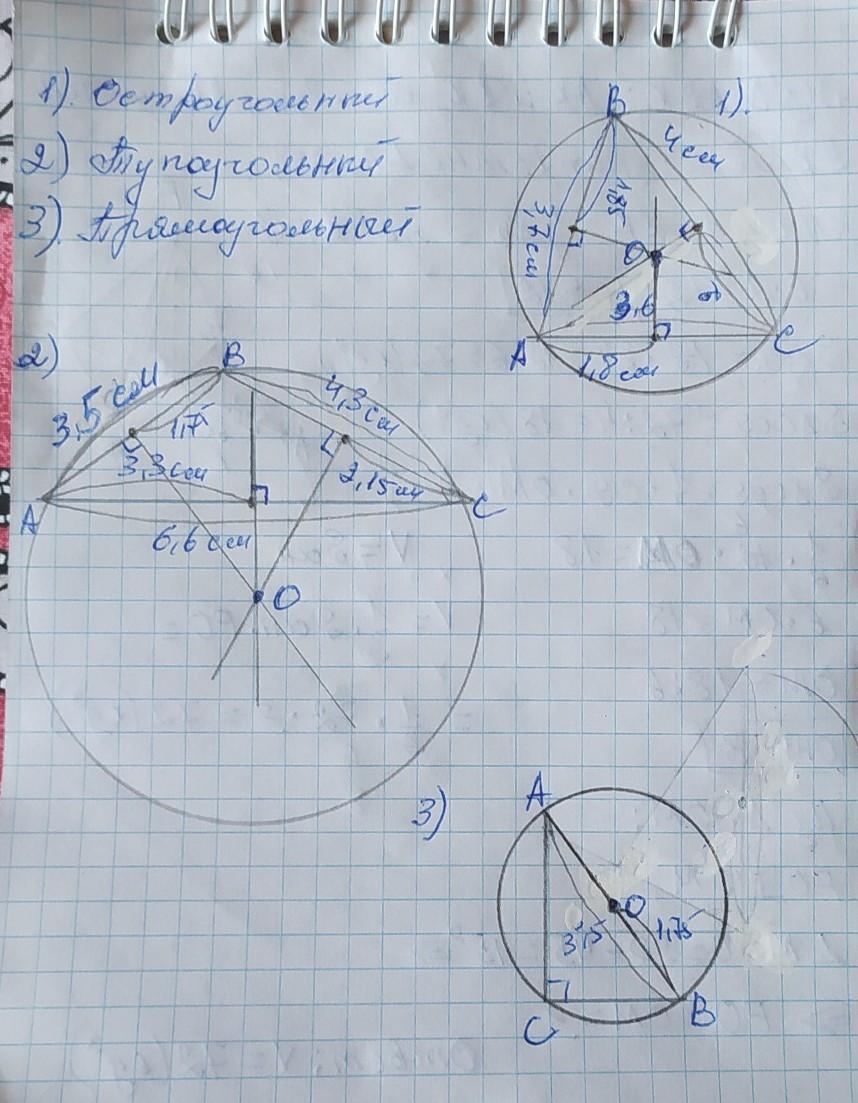 1). Остроугольный
2) Тупоугольный
3). Прямоугольный
1).
B
4 см
3,7 см
1,85
O
2
3,6
A
C
1,8 см
2)
B
3,5 см
1,75
4,3 см
3,3 см
2,15 см
A
C
6,6 см
O
3)
A
O
3,5
1,75
C
B